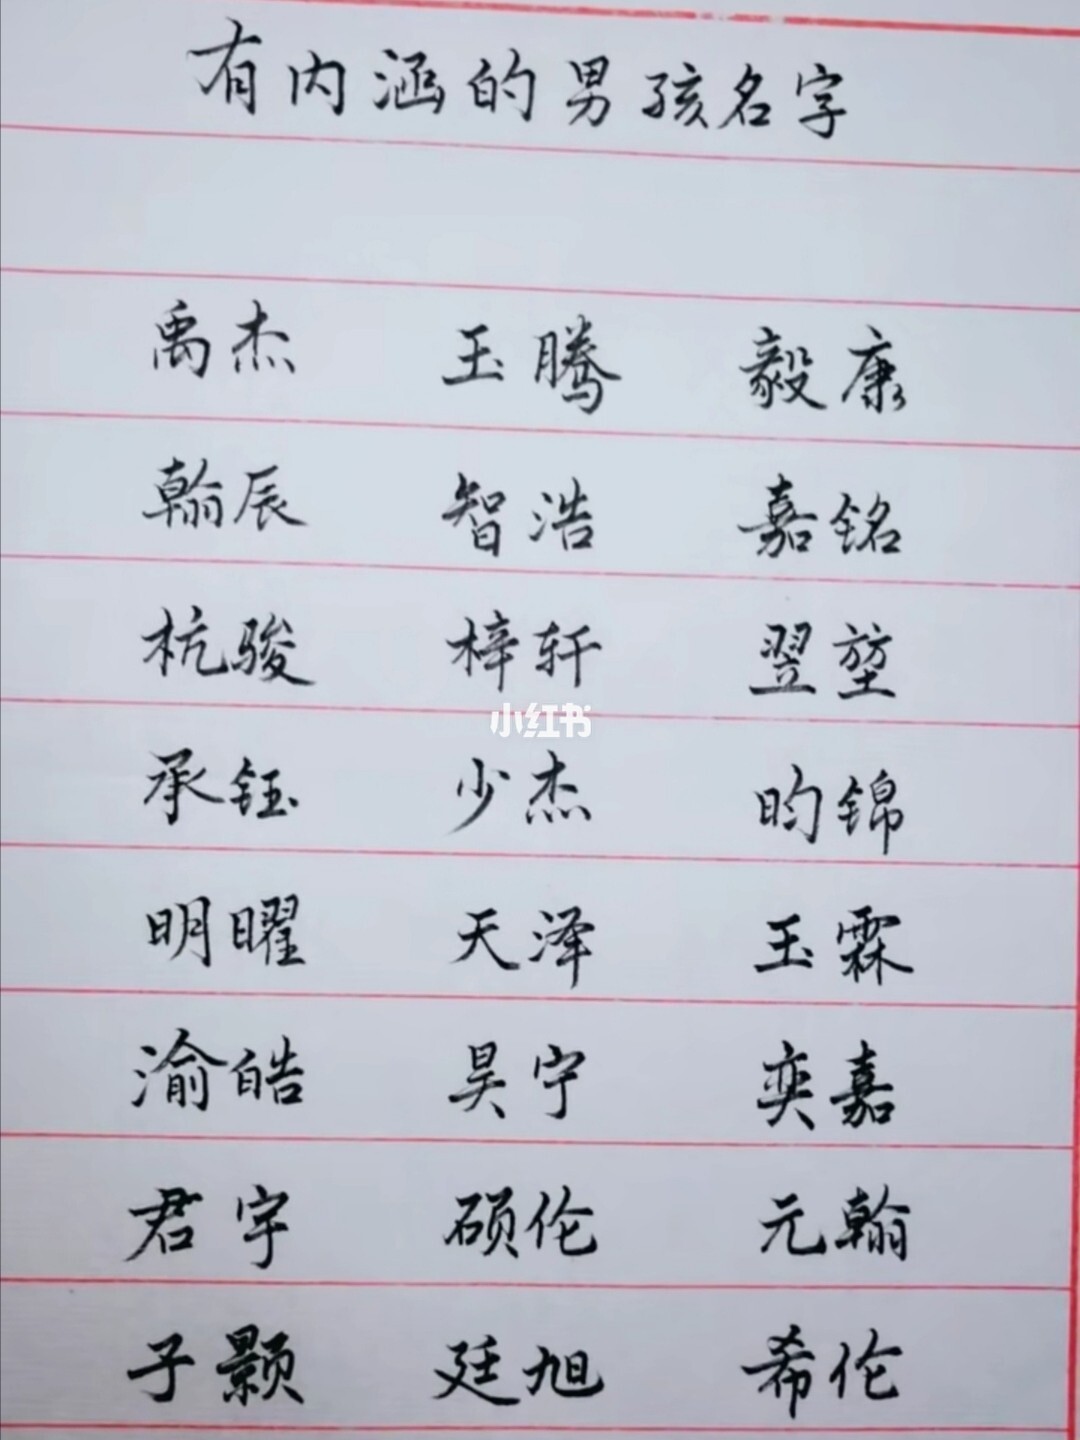 有内涵的男孩名字
禹杰 玉腾 毅康
翰辰 智浩 嘉铭
杭骏 梓轩 翌堃
小红书
承钰 少杰 昀锦
明曜 天泽 玉霖
渝皓 昊宁 奕嘉
君宇 硕伦 元翰
子颢 廷旭 希伦